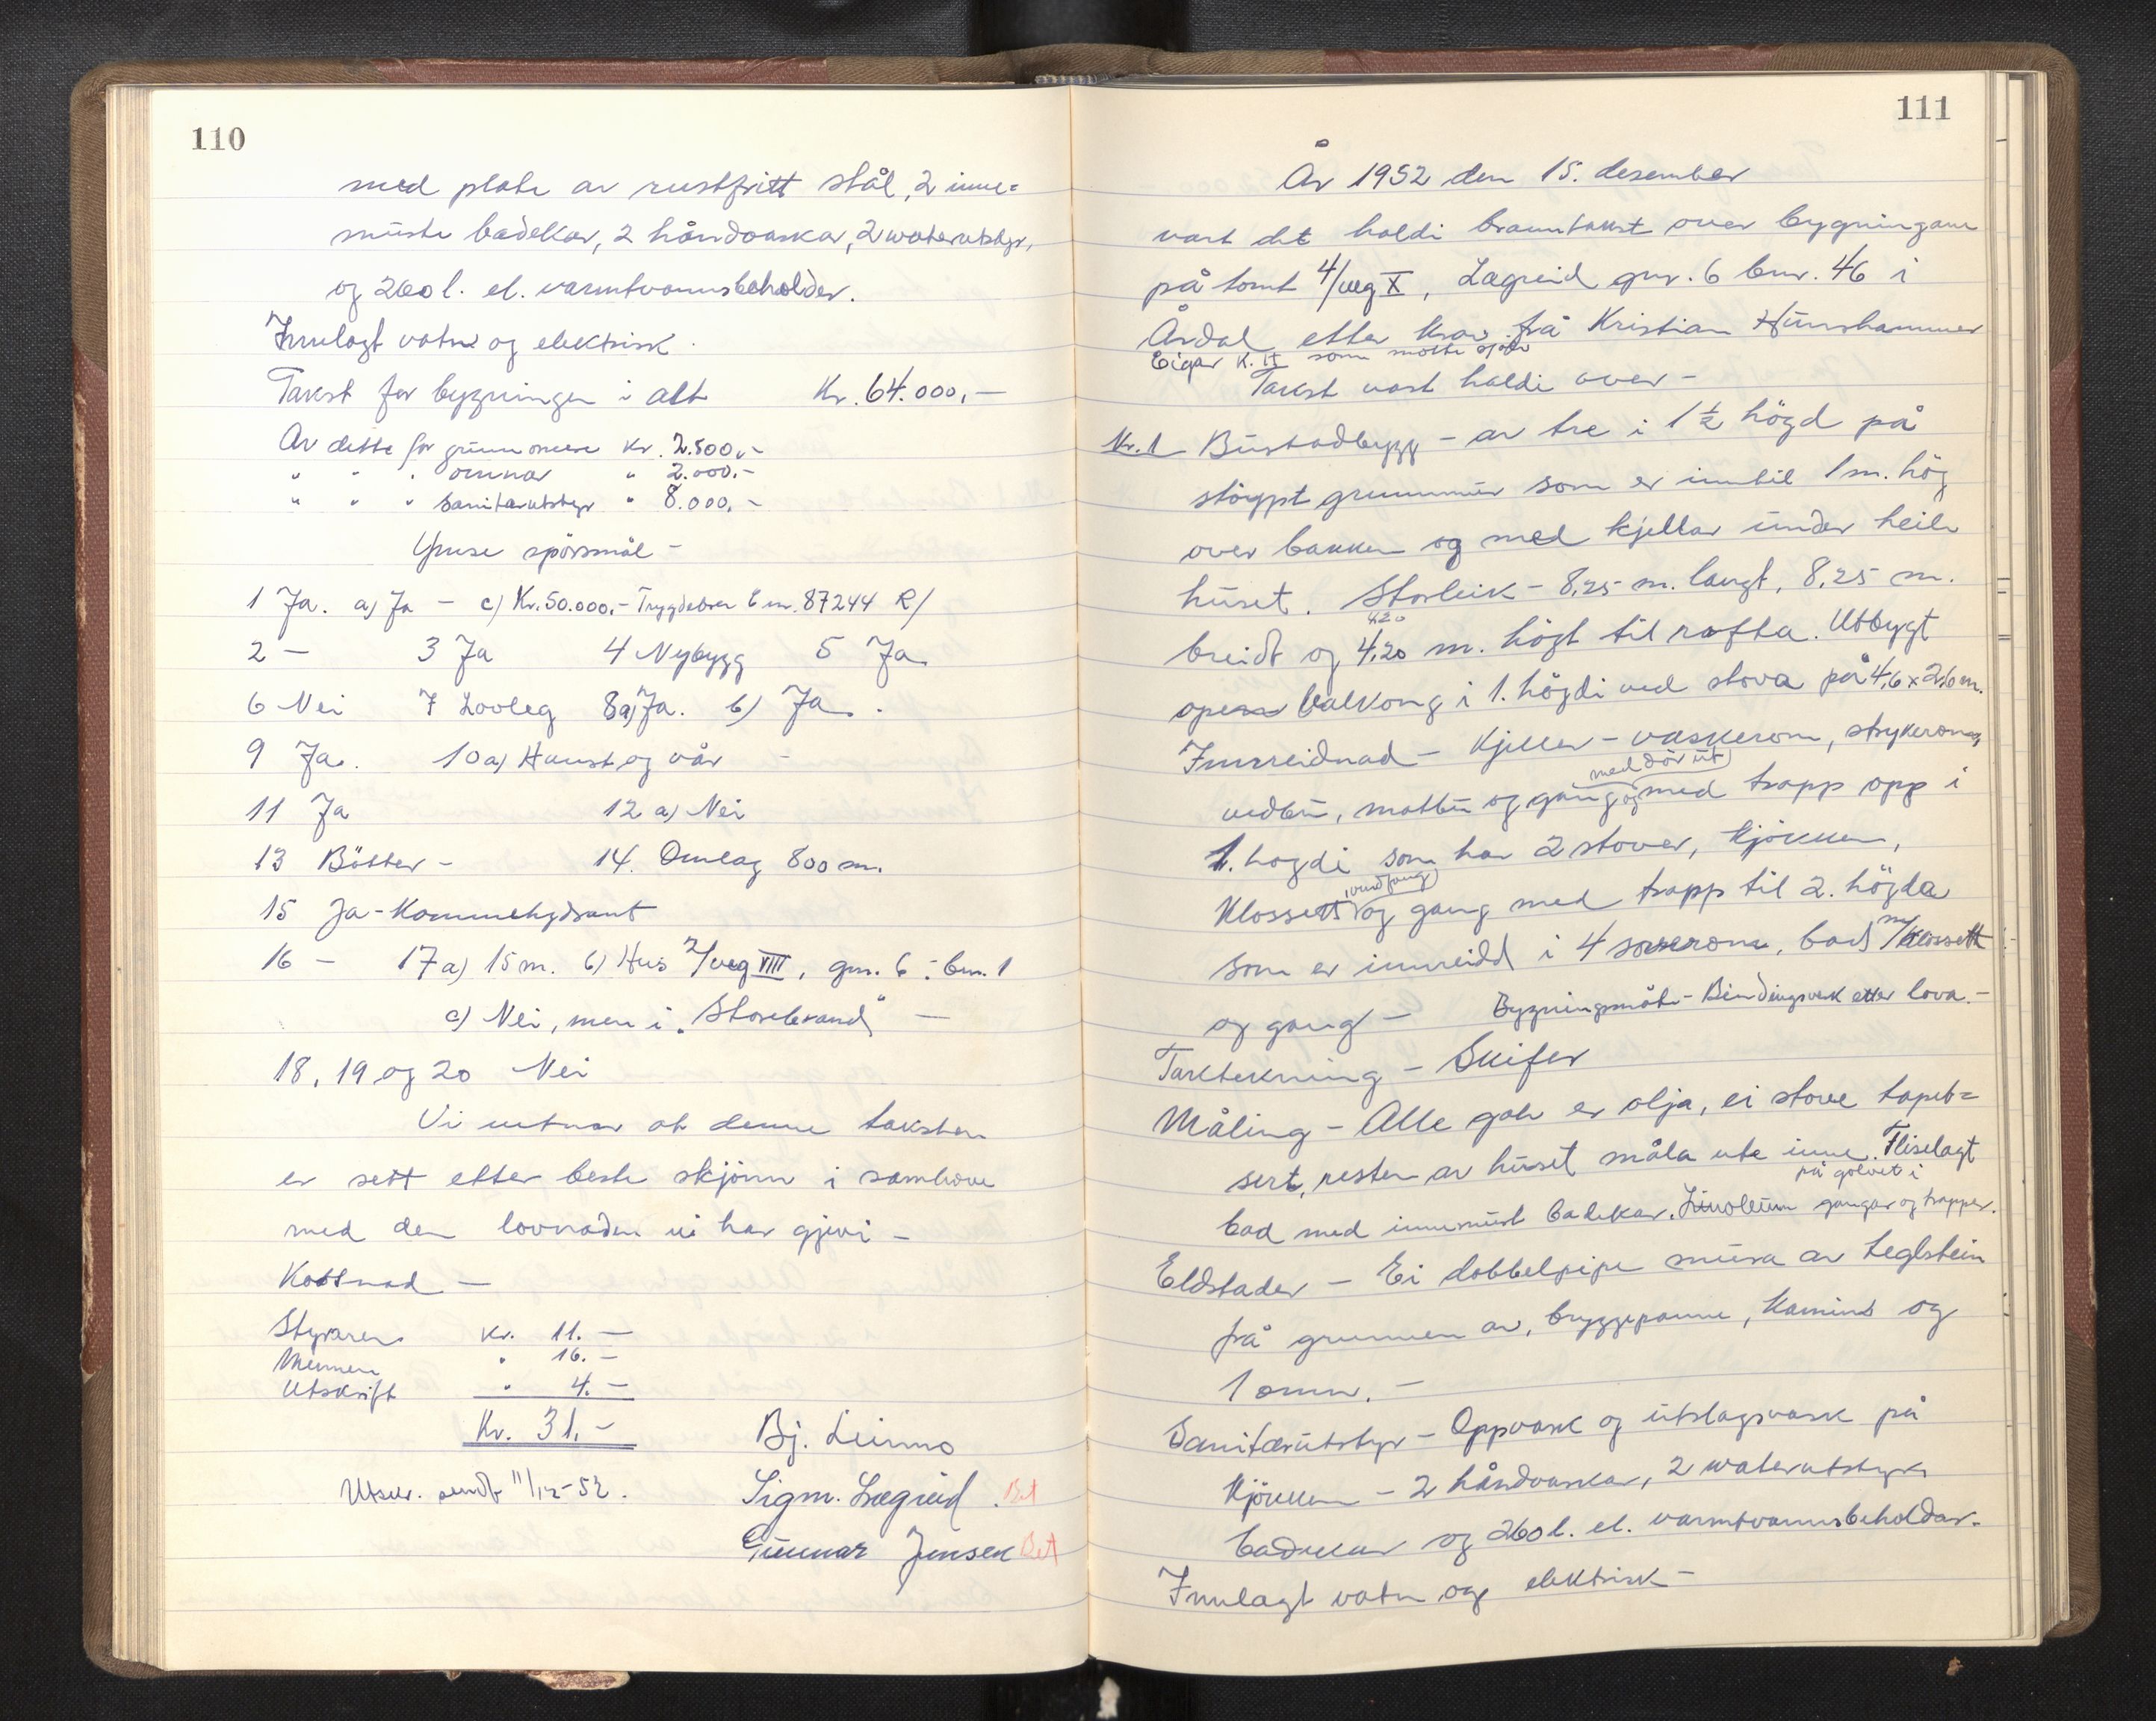 110
med plate av rustfritt stål, 2 inne=
murte badekar, 2 håndvaskar, 2 waterutstyr,
og 260 l. el. varmtvannsbeholder.
Innlagt vatn og elektrisk.
Takst for bygningen i alt Kr. 64.000,-
Av dette for grunnmure kr. 2.500,-
" " " omnar " 2.000,-
" " " sanitærutstyr " 8.000,-
Ymse spörsmål -
1 Ja. a) Ja - c) Kr. 50.000,- Trygdebrev b nr. 87244 R/
2 - 3 Ja 4 Nybygg 5 Ja
6 Nei 7 Lovleg 8a) Ja. b) Ja.
9 Ja. 10 a) Haust og vår -
11 Ja 12 a) Nei
13 Bötter - 14. Omlag 800 m.
15 Ja - Kommehydrant
16 - 17 a) 15 m. b) Hus 2/veg VIII, gnr. 6 : bnr. 1
c) Nei, men i "Storebrand" -
18, 19 og 20 Nei
Vi vitnar at denne taksten
er sett etter beste skjönn i samhøve
med den lovnaden vi har gjevi -
Kostnad -
Styraren kr. 11.-
Mennene " 16.-
Utskrift " 4.-
Kr. 31.-
Bj. Leirmo
Utskr. sendt 11/12-52.
Sigm. Lægreid. Bet
Gunnar Jensen Bet
111
År 1952 den 15. desember
vart det haldi branntakst over bygningane
på tomt 4/veg X, Lægreid gnr. 6 bnr. 46 i
Årdal etter krav frå Kristian Hunshammer
Eigar K. H som møtte sjølv
Takst vart haldi over -
Nr. 1 Bustadbygg - av tre i 1 ½ högd på
stöypt grunnmur som er inntil 1 m. hög
over bakken og med kjellar under heile
huset. Storleik - 8,25 m. langt, 8,25 m.
4,20
breidt og 4,20 m. högt til rafta. Utbygt
open balkong i 1. högdi ved stova på 4,6 x 2,6 m.
Innreidnad - Kjeller - vaskerom, strykerom,
med dör ut
vedbu, matbu og gang og med trapp opp i
1. hogdi som har 2 stover, kjökken,
vindfang
klossett og gang med trapp til 2. högda
som er innreidd i 4 soverom, bad m/klossett
og gang - Bygningsmåte - Bindingsverk etter lova.-
Taktekning - Skifer
Måling - Alle golv er olja, ei stove tapet=
sert, resten av huset måla ute inne. Fliselagt
på golvet i
bad med innemurt badekar. Linoleum gangar og trapper.
Eldstader - Ei dobbelpipe mura av teglstein
frå grunnen av, bryggepanne, kamin og
1 omn. -
Sanitærutstyr - Oppvask og utslagsvask på
kjökken - 2 håndvaskar, 2 waterutstyr,
badekar og 260 l. el. varmtvannsbeholdar.
Innlagt vatn og elektrisk -